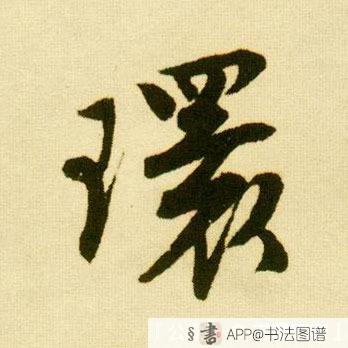 環
§書 APP@书法图谱